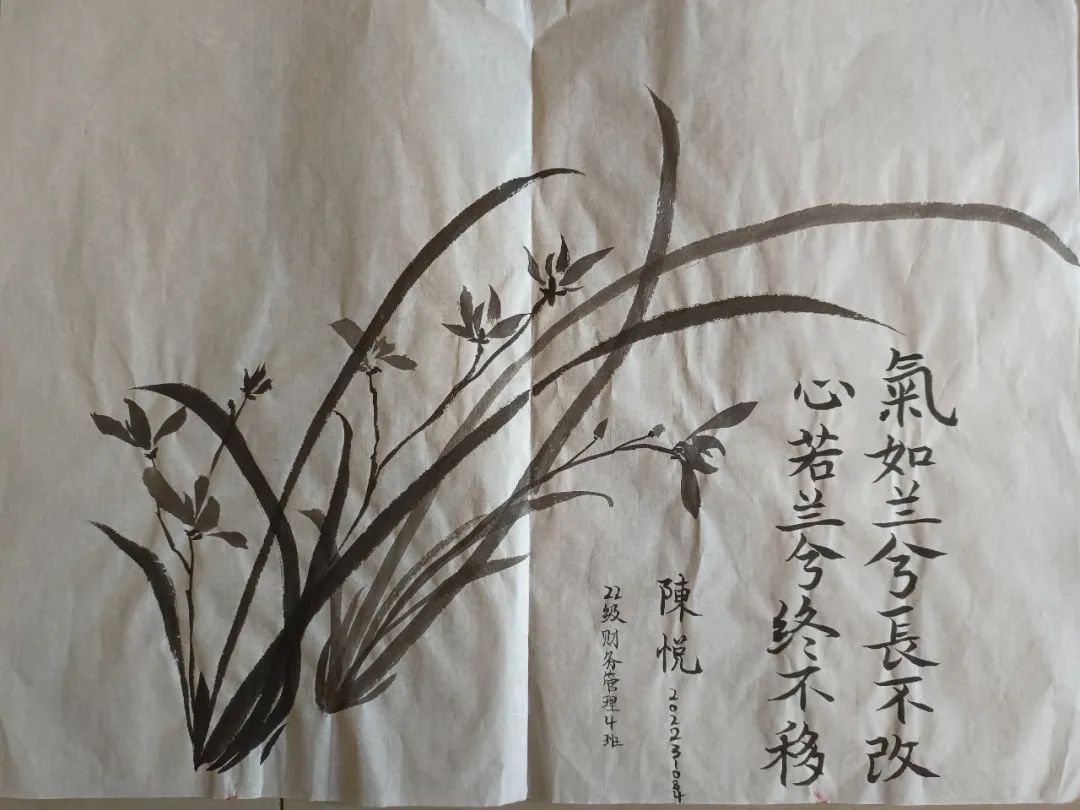 氣如兰兮長不改
心若兰兮终不移
陳悦
22级财务管理4班